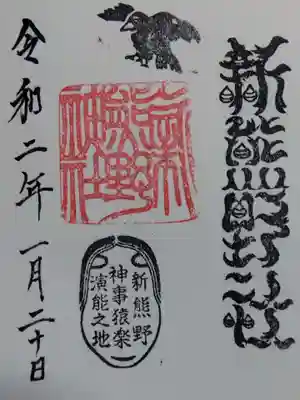 新熊野神社
新熊野
神事猿楽
演能之地
令和二年一月二十日